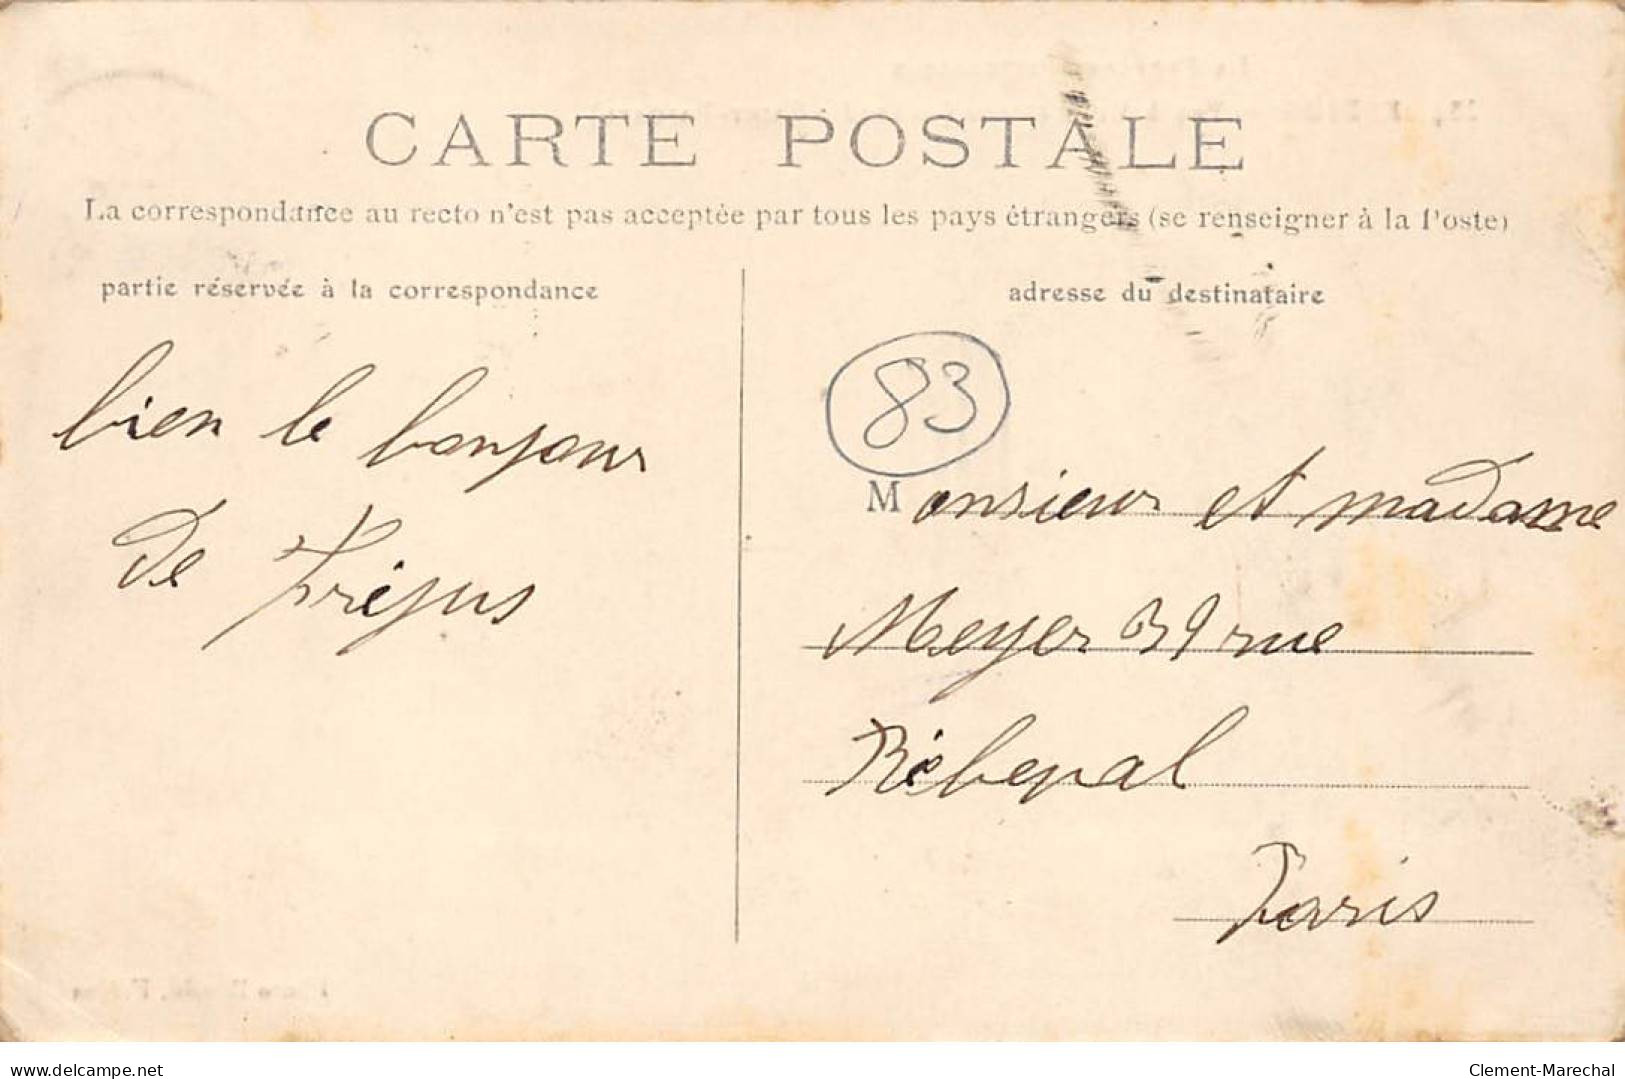 CARTE POSTALE
La correspondance au recto n'est pas acceptée par tous les pays étrangers (se renseigner à la Poste)
partie réservée à la correspondance
adresse du destinataire
bien le bonjour
de Fréjus
83
Monsieur et madame
Meyer 39 rue
Rébeval
Paris
www.delcampe.net
Clement-Marechal